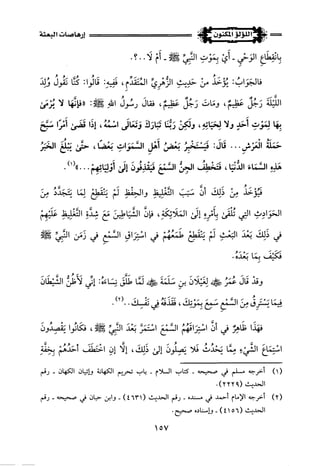 اللؤلؤ المكنون
إرهاصات البعثة
بِانْقِطَاعِ الوَحْيِ ـ أَيْ بِمَوْتِ النَّبِيِّ ﷺ ـ أَمْ لَا..؟.
فالجَوَابُ: يُؤْخَذُ مِنْ حَدِيثِ الزُّهْرِيِّ المُتَقَدِّمِ، فَفِيهِ: قَالُوا: كُنَّا نَقُولُ وُلِدَ
اللَّيْلَةَ رَجُلٌ عَظِيمٌ، وَمَاتَ رَجُلٌ عَظِيمٌ، فقالَ رسُولُ اللهِ ﷺ: «فَإِنَّهَا لا يُرْمَىٰ
بِهَا لِمَوْتِ أَحَدٍ ولا لِحَيَاتِهِ، ولَكِنْ رَبُّنَا تَبَارَكَ وَتَعَالَى اسْمُهُ، إِذَا قَضَىٰ أَمْرًا سَبَّحَ
حَمَلَةُ الْعَرْشِ... قَالَ: فَيَسْتَخْبِرُ بَعْضُ أَهْلِ السَّمَوَاتِ بَعْضًا، حَتَّىٰ يَبْلُغَ الخَبَرُ
هَذِهِ السَّمَاءَ الدُّنْيَا، فَتَخْطِفُ الجِنُّ السَّمْعَ فَيَقْذِفُونَ إِلَىٰ أَوْلِيَائِهِمْ...»(١).
فَيُؤْخَذُ مِنْ ذَلِكَ أَنَّ سَبَبَ التَّغْلِيظِ والحِفْظِ لَمْ يَنْقَطِعْ لِمَا يَتَجَدَّدُ مِنَ
الحَوَادِثِ التِي تُلْقَىٰ بِأَمْرِهِ إِلَىٰ المَلَائِكَةِ، فَإِنَّ الشَّيَاطِينَ مَعَ شِدَّةِ التَّغْلِيظِ عَلَيْهِمْ
في ذَلِكَ بَعْدَ البَعْثِ لَمْ يَنْقَطِعْ طَمَعُهُمْ في اسْتِرَاقِ السَّمْعِ في زَمَنِ النَّبِيِّ ﷺ
فَكَيْفَ بِمَا بَعْدَهُ.
وقدْ قَالَ عُمَرُ ﷺ لِغَيْلَانَ بنِ سَلَمَةَ ﷺ لَمَّا طَلَّقَ نِسَاءَهُ: إِنِّي لَأَظُنُّ الشَّيْطَانَ
فِيمَا يَسْتَرِقُ مِنَ السَّمْعِ سَمِعَ بِمَوْتِكَ، فَقَذَفَهُ في نَفْسِكَ..(٢).
فَهَذَا ظَاهِرٌ في أَنَّ اسْتِرَاقَهُمُ السَّمْعَ اسْتَمَرَّ بَعْدَ النَّبِيِّ ﷺ، فَكَانُوا يَقْصِدُونَ
اسْتِمَاعَ الشَّيْءِ مِمَّا يَحْدُثُ فَلَا يَصِلُونَ إِلىٰ ذَلِكَ، إِلَّا إِنِ اخْتَطَفَ أَحَدُهُمْ بِخِفَّةِ
(١) أخرجه مسلم في صحيحه ـ كتاب السلام ـ باب تحريم الكهانة وإتيان الكهان ـ رقم
الحديث (٢٢٢٩).
(٢) أخرجه الإمام أحمد في مسنده ـ رقم الحديث (٤٦٣١) ـ وابن حبان في صحيحه ـ رقم
الحديث (٤١٥٦) ـ وإسناده صحيح.
١٥٧